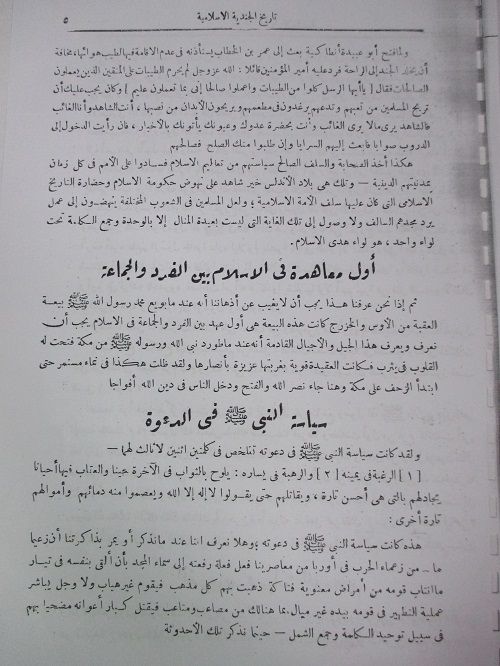 تاريخ الجندية الاسلامية ٥
ولما فتح أبو عبيدة أنطاكية بعث إلى عمر بن الخطاب يستأذنه فى عدم الاقامة فيها لطيب هوائها، مخافة
أن يخلد الجند إلى الراحة فرد عليه أمير المؤمنين قائلا : الله عز وجل لم يحرم الطيبات على المتقين الذين يعملون
الصالحات فقال [ يا أيها الرسل كلوا من الطيبات واعملوا صالحا إنى بما تعملون عليم ] وكان يجب عليك أن
تريح المسلمين من تعبهم وتدعهم يرغدون فى مطعمهم ويريحون الأبدان من نصبها ، أنت الشاهد وأنا الغائب
فالشاهد يرى مالا يرى الغائب وأنت بحضرة عدوك وعيونك يأتونك بالأخبار ، فان رأيت الدخول إلى
الدروب صوابا فابعث إليهم السرايا وإن طلبوا منك الصلح فصالحهم
هكذا أخذ الصحابة والسلف الصالح سياستهم من تعاليم الاسلام فسادوا على الأمم فى كل زمان
بمدنيتهم الدينية — وتلك هى بلاد الأندلس خير شاهد على نهوض حكومة الاسلام وحضارة التاريخ
الاسلامى التى كان عليها سلف الأمة الاسلامية ، ولعل المسلمين فى الشعوب المختلفة ينهضون إلى عمل
يرد مجدهم السالف ولا وصول إلى تلك الغاية التى ليست بعيدة المنال إلا بالوحدة وجمع الكلمة تحت
لواء واحد ، هو لواء هدى الاسلام .
أول معاهدة فى الاسلام بين الفرد والجماعة
ثم إذا نحن عرفنا هذا يجب أن لا يغيب عن أذهاننا أنه عند ما بويع محمد رسول الله ﷺ بيعة
العقبة من الأوس والخزرج كانت هذه البيعة هى أول عهد بين الفرد والجماعة فى الاسلام يجب أن
نعرف ويعرف هذا الجيل والاجيال القادمة أنه عند ما طورد نبى الله ورسوله ﷺ من مكة فتحت له
القلوب فى يثرب فكانت العقيدة قوية بغربتها عزيزة بأنصارها ولقد ظلت هكذا فى نماء مستمر حتى
ابتدأ الزحف على مكة وهنا جاء نصر الله والفتح ودخل الناس فى دين الله أفواجا
سياسة النبى ﷺ فى الدعوة
ولقد كانت سياسة النبى ﷺ فى دعوته تتلخص فى كلمتين اثنين لا ثالث لهما —
[ ١ ] الرغبة فى يمينه [ ٢ ] والرهبة فى يساره : يلوح بالثواب فى الآخرة حينا والعتاب فيها أحيانا
يجادلهم بالتى هى أحسن تارة ، ويقاتلهم حتى يقولوا لا إله إلا الله ويعصموا منه دمائهم وأموالهم
تارة أخرى :
هذه كانت سياسة النبى ﷺ فى دعوته ؛ وهلا نعرف اننا عند ما نذكر أو يمر بذاكرتنا أن زعيما
ما — من زعماء الحرب فى أوربا من معاصرينا فعل فعلة رفعته إلى سماء المجد بأن ألقى بنفسه فى تيار
ما انتاب قومه من أمراض معنوية فتاكة ذهبت بهم كل مذهب فيقوم غير هياب ولا وجل يباشر
عملية التطهير فى قومه بيده غير ميال بما هنالك من مصاعب ومتاعب فيقتل كبار أعوانه مضحيا بهم
فى سبيل توحيد الكلمة وجمع الشمل — حينما نذكر تلك الأحدوثة